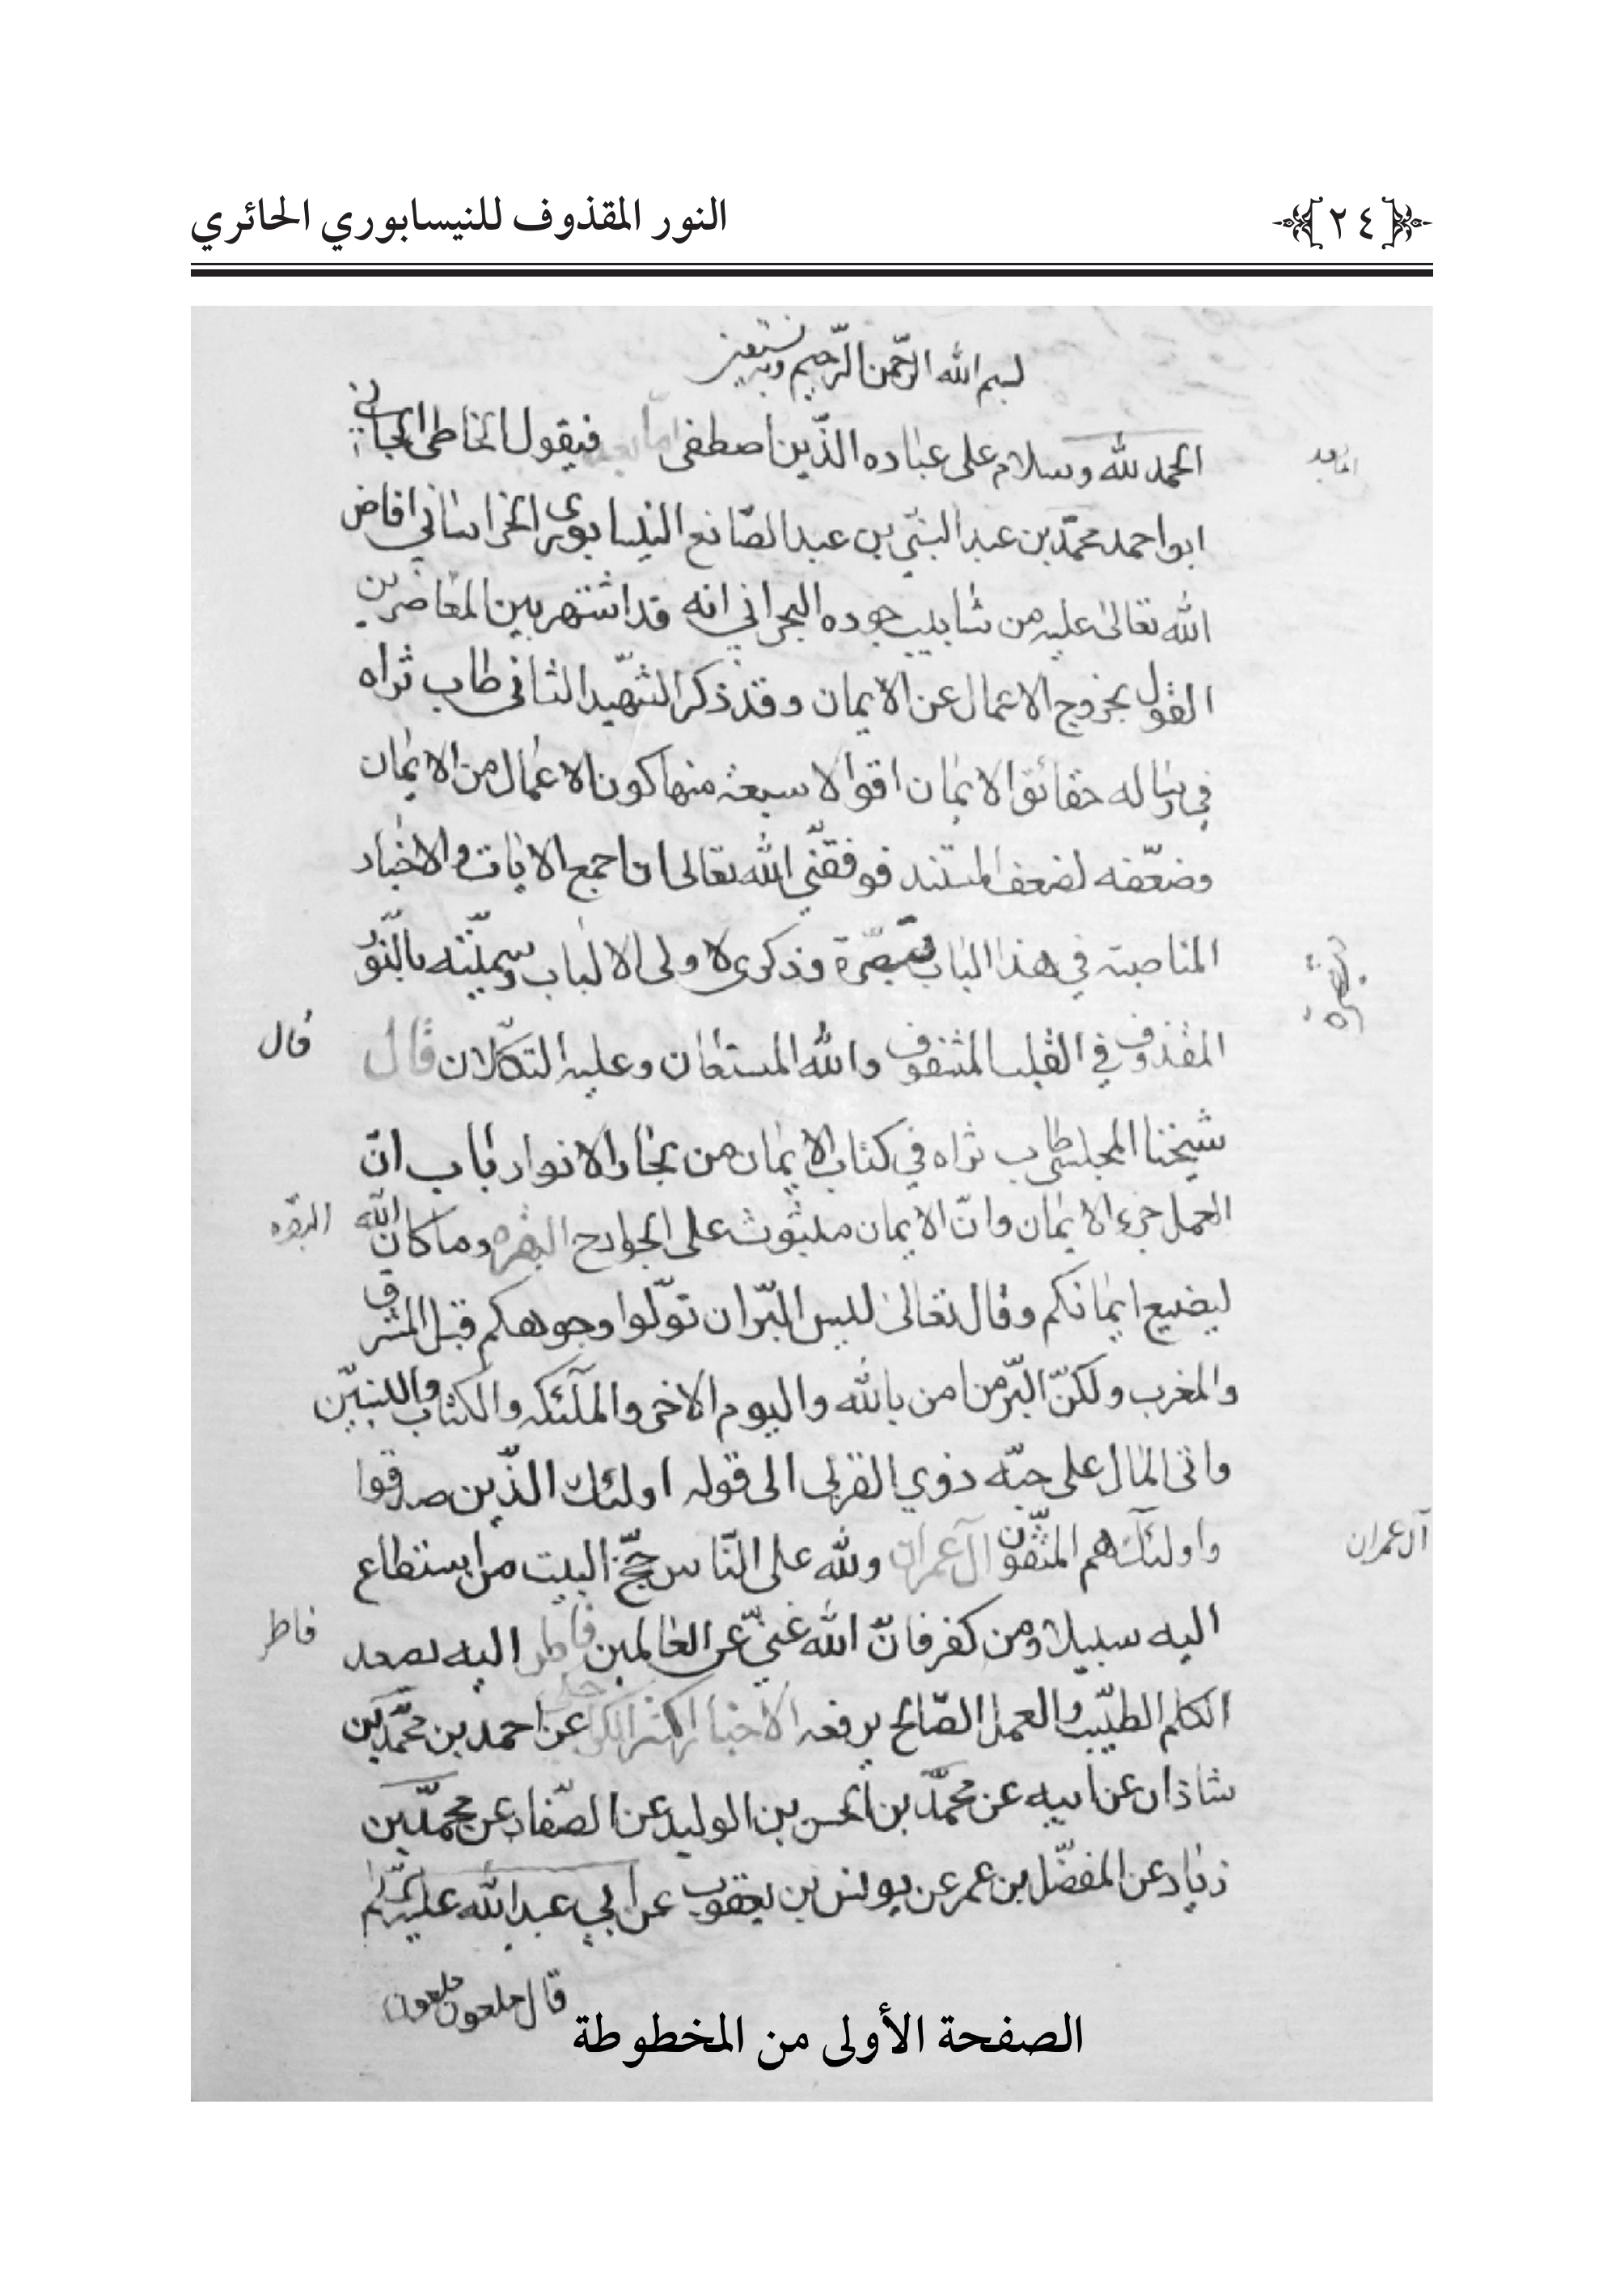 ﴿٢٤﴾ النور المقذوف للنيسابوري الحائري
بسم الله الرحمن الرحيم وبه نستعين
الحمد لله وسلام على عباده الذين اصطفى اما بعد فيقول الخاطى الجاني
اما بعد
ابو احمد محمد بن عبد النبي بن عبد الصانع النيسابوري الخراساني افاض
الله تعالى عليه من شابيب جوده البحراني انه قد اشتهر بين المعاصرين
القول بخروج الاعمال عن الايمان وقد ذكر الشهيد الثاني طاب ثراه
في رساله حقائق الايمان اقوالا سبعة منها كون الاعمال من الايمان
وضعّفه لضعف المستند فوفقني الله تعالى ان اجمع الايات والاخبار
المناصبة في هذا الباب تبصرة وذكرى لاولى الالباب وسمّيته بالنور
تبصرة
المقذوف في القلب المشفوف والله المستعان وعليه التكلان قال
قال
شيخنا المجلسي طاب ثراه في كتاب الايمان من بحار الانوار باب انّ
العمل جزء الايمان وانّ الايمان مبثوث على الجوارح البقره وما كان الله
البقره
ليضيع ايمانكم وقال تعالى ليس البرّ ان تولّوا وجوهكم قبل المشرق
والمغرب ولكنّ البرّ من امن بالله واليوم الاخر والملئكه والكتاب والنبيّين
واتى المال على حبّه ذوي القربى الى قوله اولئك الذين صدقوا
واولئك هم المتّقون آل عمران ولله على النّاس حجّ البيت من استطاع
آل عمران
اليه سبيلا ومن كفر فانّ الله غنيّ عن العالمين فاطر اليه يصعد
فاطر
الكلم الطيّب والعمل الصّالح يرفعه الاخبار اكثر الكراجكى عن احمد بن محمّد بن
شاذان عن ابيه عن محمّد بن الحسن بن الوليد عن الصّفار عن محمّد بن
زياد عن المفضّل بن عمر عن يونس بن يعقوب عن ابي عبد الله عليه السّلام
قال ملعون ملعون
الصفحة الأولى من المخطوطة